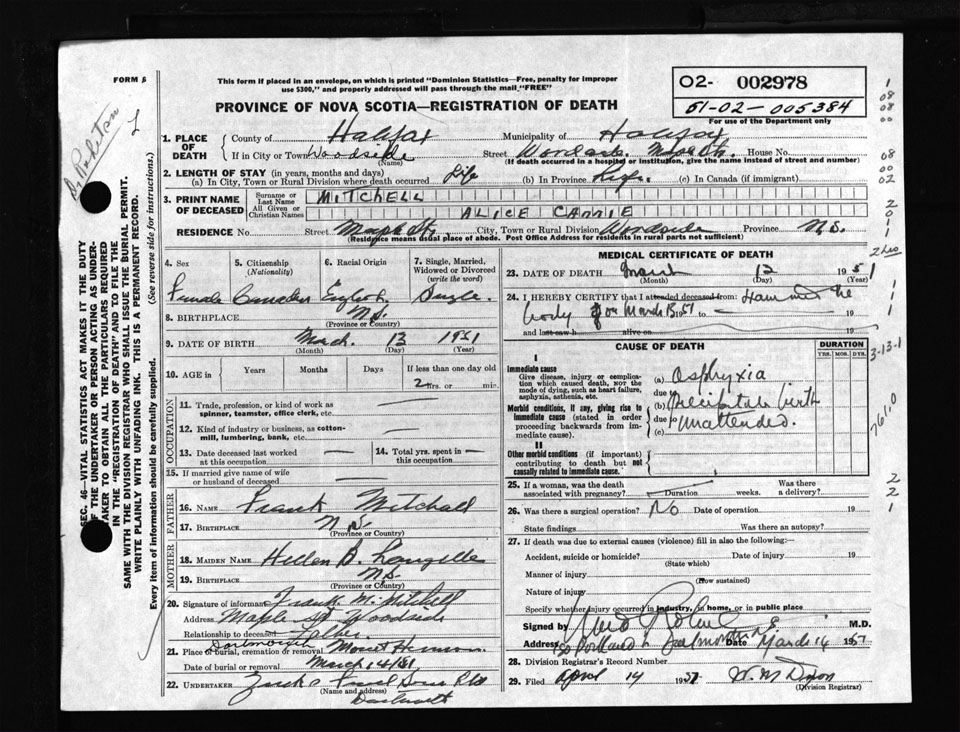 FORM 6
This form if placed in an envelope, on which is printed "Dominion Statistics—Free, penalty for improper
use $300," and properly addressed will pass through the mail "FREE"
PROVINCE OF NOVA SCOTIA—REGISTRATION OF DEATH
O2- 002978
51-02-005384
For use of the Department only
1. PLACE OF DEATH
County of Halifax Municipality of Halifax
If in City or Town Woodside Street Woodside Maple St. House No.
(Name) (If death occurred in a hospital or institution, give the name instead of street and number)
2. LENGTH OF STAY (in years, months and days)
(a) In City, Town or Rural Division where death occurred Life (b) In Province Life. (c) In Canada (if immigrant)
3. PRINT NAME OF DECEASED
Surname or Last Name MITCHELL
All Given or Christian Names ALICE CARRIE
RESIDENCE No. Street Maple St, City, Town or Rural Division Woodside Province N.S.
(Residence means usual place of abode. Post Office Address for residents in rural parts not sufficient)
4. Sex 5. Citizenship (Nationality) 6. Racial Origin 7. Single, Married, Widowed or Divorced (write the word)
Female Canadian English Single.
8. BIRTHPLACE N.S.
(Province or Country)
9. DATE OF BIRTH March 13 1951
(Month) (Day) (Year)
10. AGE in Years Months Days If less than one day old
2 hrs. or min.
OCCUPATION
11. Trade, profession, or kind of work as
spinner, teamster, office clerk, etc. —
12. Kind of industry or business, as cotton-
mill, lumbering, bank, etc. —
13. Date deceased last worked at this occupation — 14. Total yrs. spent in this occupation —
15. If married give name of wife
or husband of deceased
FATHER
16. Name Frank Mitchell
17. Birthplace N.S.
(Province or Country)
MOTHER
18. MAIDEN NAME Hellen B. Langille
19. Birthplace N.S.
(Province or Country)
20. Signature of informant Frank M. Mitchell
Address Maple St Woodside
Relationship to deceased Father.
21. Place of burial, cremation or removal Dartmouth Mount Hermon.
Date of burial or removal March 14/51
22. UNDERTAKER
(Name and address)
Dartmouth
MEDICAL CERTIFICATE OF DEATH
23. DATE OF DEATH March 13 1951
(Month) (Day) (Year)
24. I HEREBY CERTIFY that I attended deceased from: I examined the
body on March 13 1951 to — 19
and last saw h alive on 19
CAUSE OF DEATH DURATION
YRS. MOS. DYS.
I
Immediate cause
Give disease, injury or compli-
cation which caused death, not the
mode of dying, such as heart failure,
asphyxia, asthenia, etc.
(a) Asphyxia
due to
Morbid conditions, if any, giving rise to
immediate cause (stated in order
proceeding backwards from im-
mediate cause).
(b) Precipitate birth
due to
(c) Unattended.
II
Other morbid conditions (if important)
contributing to death but not
causally related to immediate cause.
25. If a woman, was the death
associated with pregnancy? Duration weeks. Was there
a delivery?
26. Was there a surgical operation? No Date of operation 19
State findings Was there an autopsy?
27. If death was due to external causes (violence) fill in also the following:—
Accident, suicide or homicide? Date of injury 19
(State which)
Manner of injury
(How sustained)
Nature of injury
Specify whether injury occurred in industry, in home, or in public place
Signed by M.D.
Address Portland St Dartmouth Date March 14 1951
28. Division Registrar's Record Number
29. Filed April 14 1951 W. M. Dixon
(Division Registrar)
SEC. 46—VITAL STATISTICS ACT MAKES IT THE DUTY
OF THE UNDERTAKER OR PERSON ACTING AS UNDER-
TAKER TO OBTAIN ALL THE PARTICULARS REQUIRED
IN THE "REGISTRATION OF DEATH" AND TO FILE THE
SAME WITH THE DIVISION REGISTRAR WHO SHALL ISSUE THE BURIAL PERMIT
WRITE PLAINLY WITH UNFADING INK. THIS IS A PERMANENT RECORD.
Every item of information should be carefully supplied. (See reverse side for instructions.)
1
08
08
00
08
00
02
2
0
1
2 hrs
1
1
1
3-13-1
761.0
2
2
1